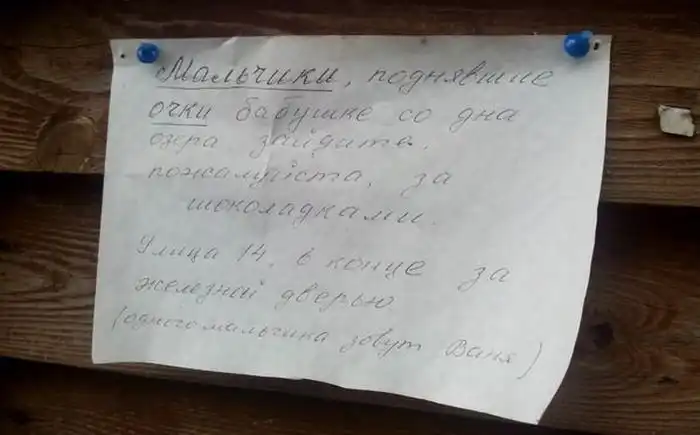 Мальчики, поднявшие
очки бабушке со дна
озра зайдите,
пожалуйста, за
шоколадками.
Улица 14, в конце за
железной дверью
(одного мальчика зовут Ваня)